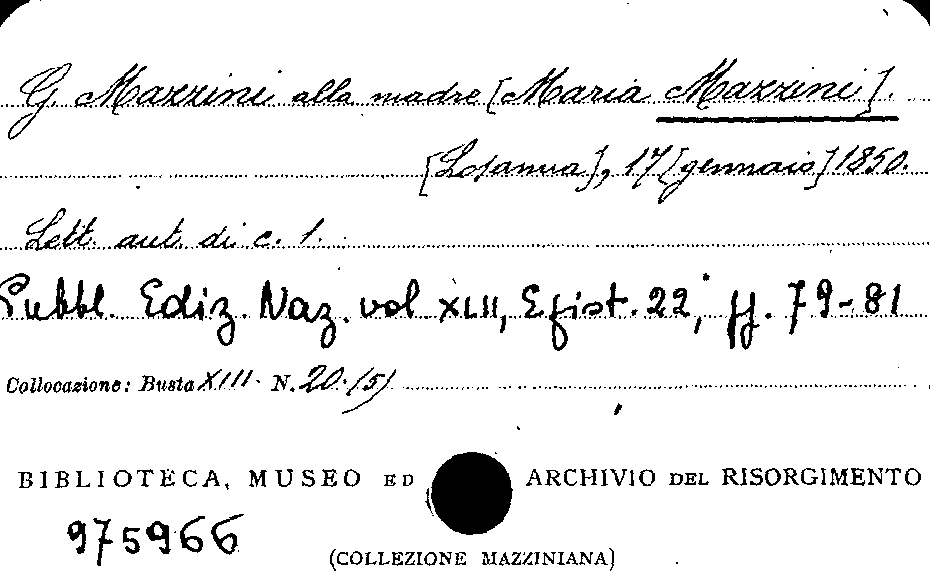 G. Mazzini alla madre [Maria Mazzini].
[Losanna], 17 [gennaio] 1850.
Lett. aut. di c. 1.
Pubbl. Ediz. Naz. vol XLII, Epist. 22, pp. 79-81
Collocazione: Busta XIII. N. 20.(5)
BIBLIOTECA, MUSEO ED ARCHIVIO DEL RISORGIMENTO
975966
(COLLEZIONE MAZZINIANA)